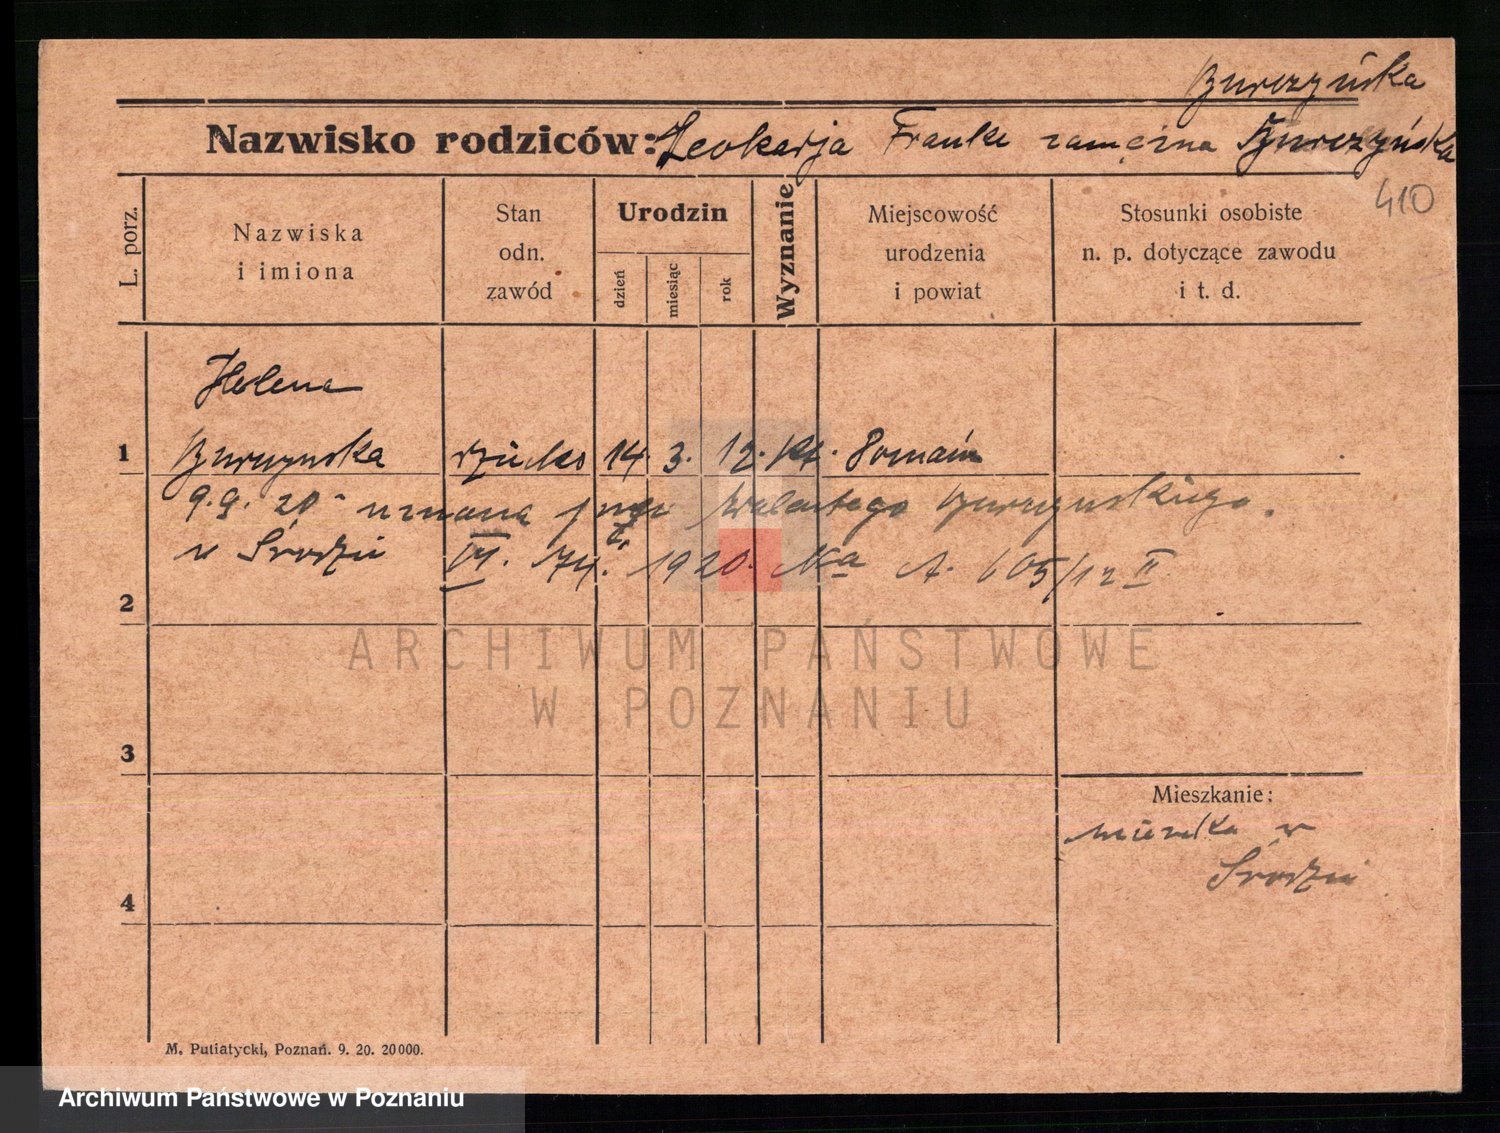 Burczyńska
Nazwisko rodziców: Leokadja Franke zamężna Burczyńska
410
L. porz.
Nazwiska
i imiona
Stan
odn.
zawód
Urodzin
dzień
miesiąc
rok
Wyznanie
Miejscowość
urodzenia
i powiat
Stosunki osobiste
n. p. dotyczące zawodu
i t. d.
Helena
1 Burczynska dziecko 14. 3. 12. kt. Poznań
9.9. 20 uznana przez Walentego Burczynskiego.
w Środzie 1920. A. 605/12 II
2
ARCHIWUM PAŃSTWOWE
W POZNANIU
3
Mieszkanie:
mieszka w
Środzie
4
M. Putiatycki, Poznań. 9. 20. 20000.
Archiwum Państwowe w Poznaniu